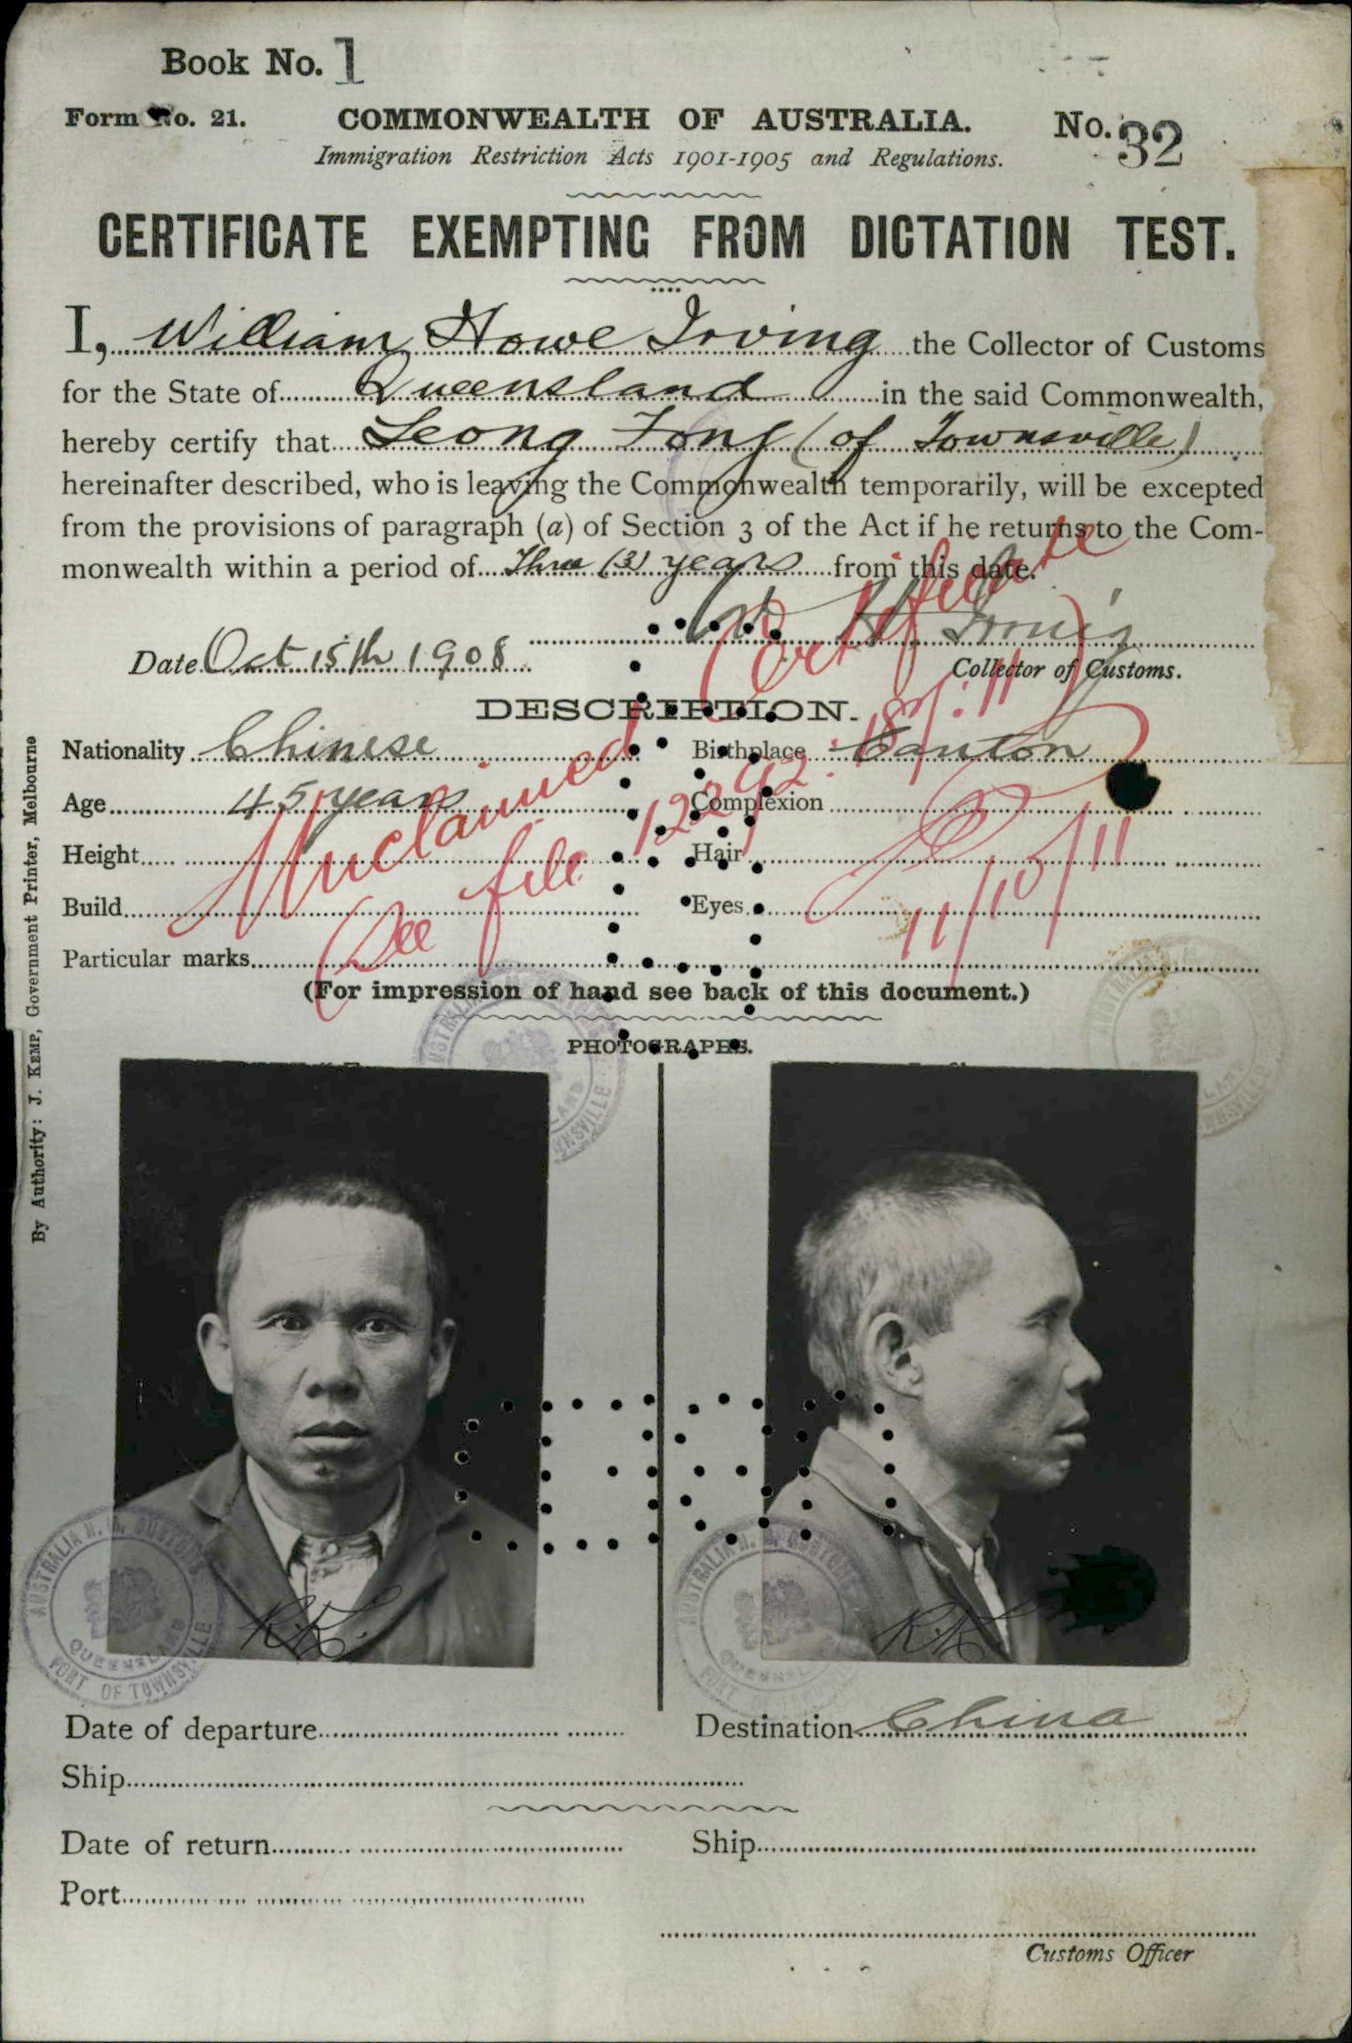 Book No. 1
Form No. 21.
COMMONWEALTH OF AUSTRALIA.
No. 32
Immigration Restriction Acts 1901-1905 and Regulations.
CERTIFICATE EXEMPTING FROM DICTATION TEST.
I, William Howe Irving the Collector of Customs
for the State of Queensland in the said Commonwealth,
hereby certify that Leong Fong (of Townsville)
hereinafter described, who is leaving the Commonwealth temporarily, will be excepted
from the provisions of paragraph (a) of Section 3 of the Act if he returns to the Com-
monwealth within a period of Three (3) years from this date.
W H Irving
Date Oct 15th 1908
Collector of Customs.
DESCRIPTION.
Nationality Chinese
Birthplace Canton
Age 45 years
Complexion
Height
Hair
Build
Eyes
Particular marks
(For impression of hand see back of this document.)
Unclaimed Certificate
See file
11/10/11
PHOTOGRAPHS.
AUSTRALIA H. M. CUSTOMS
QUEENSLAND
PORT OF TOWNSVILLE
R.K.
AUSTRALIA H. M. CUSTOMS
QUEENSLAND
PORT OF TOWNSVILLE
R.K.
Date of departure
Destination China
Ship
Date of return
Ship
Port
Customs Officer
By Authority: J. KEMP, Government Printer, Melbourne